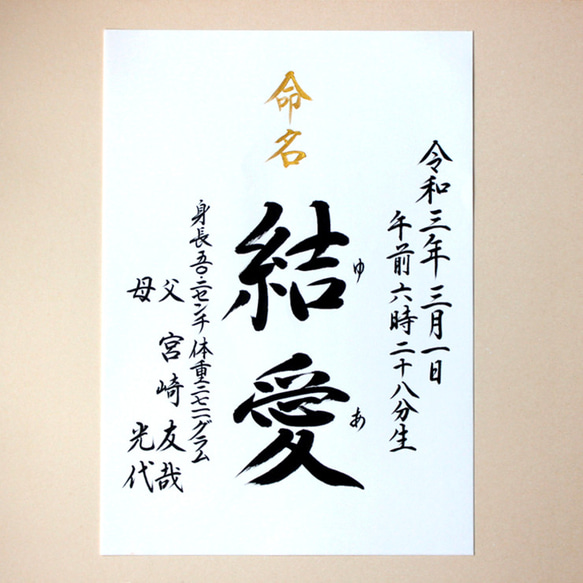 命名
令和三年三月一日
午前六時二十八分生
結愛
ゆあ
身長五〇・二センチ 体重二七二一グラム
父 宮崎 友哉
母 光代